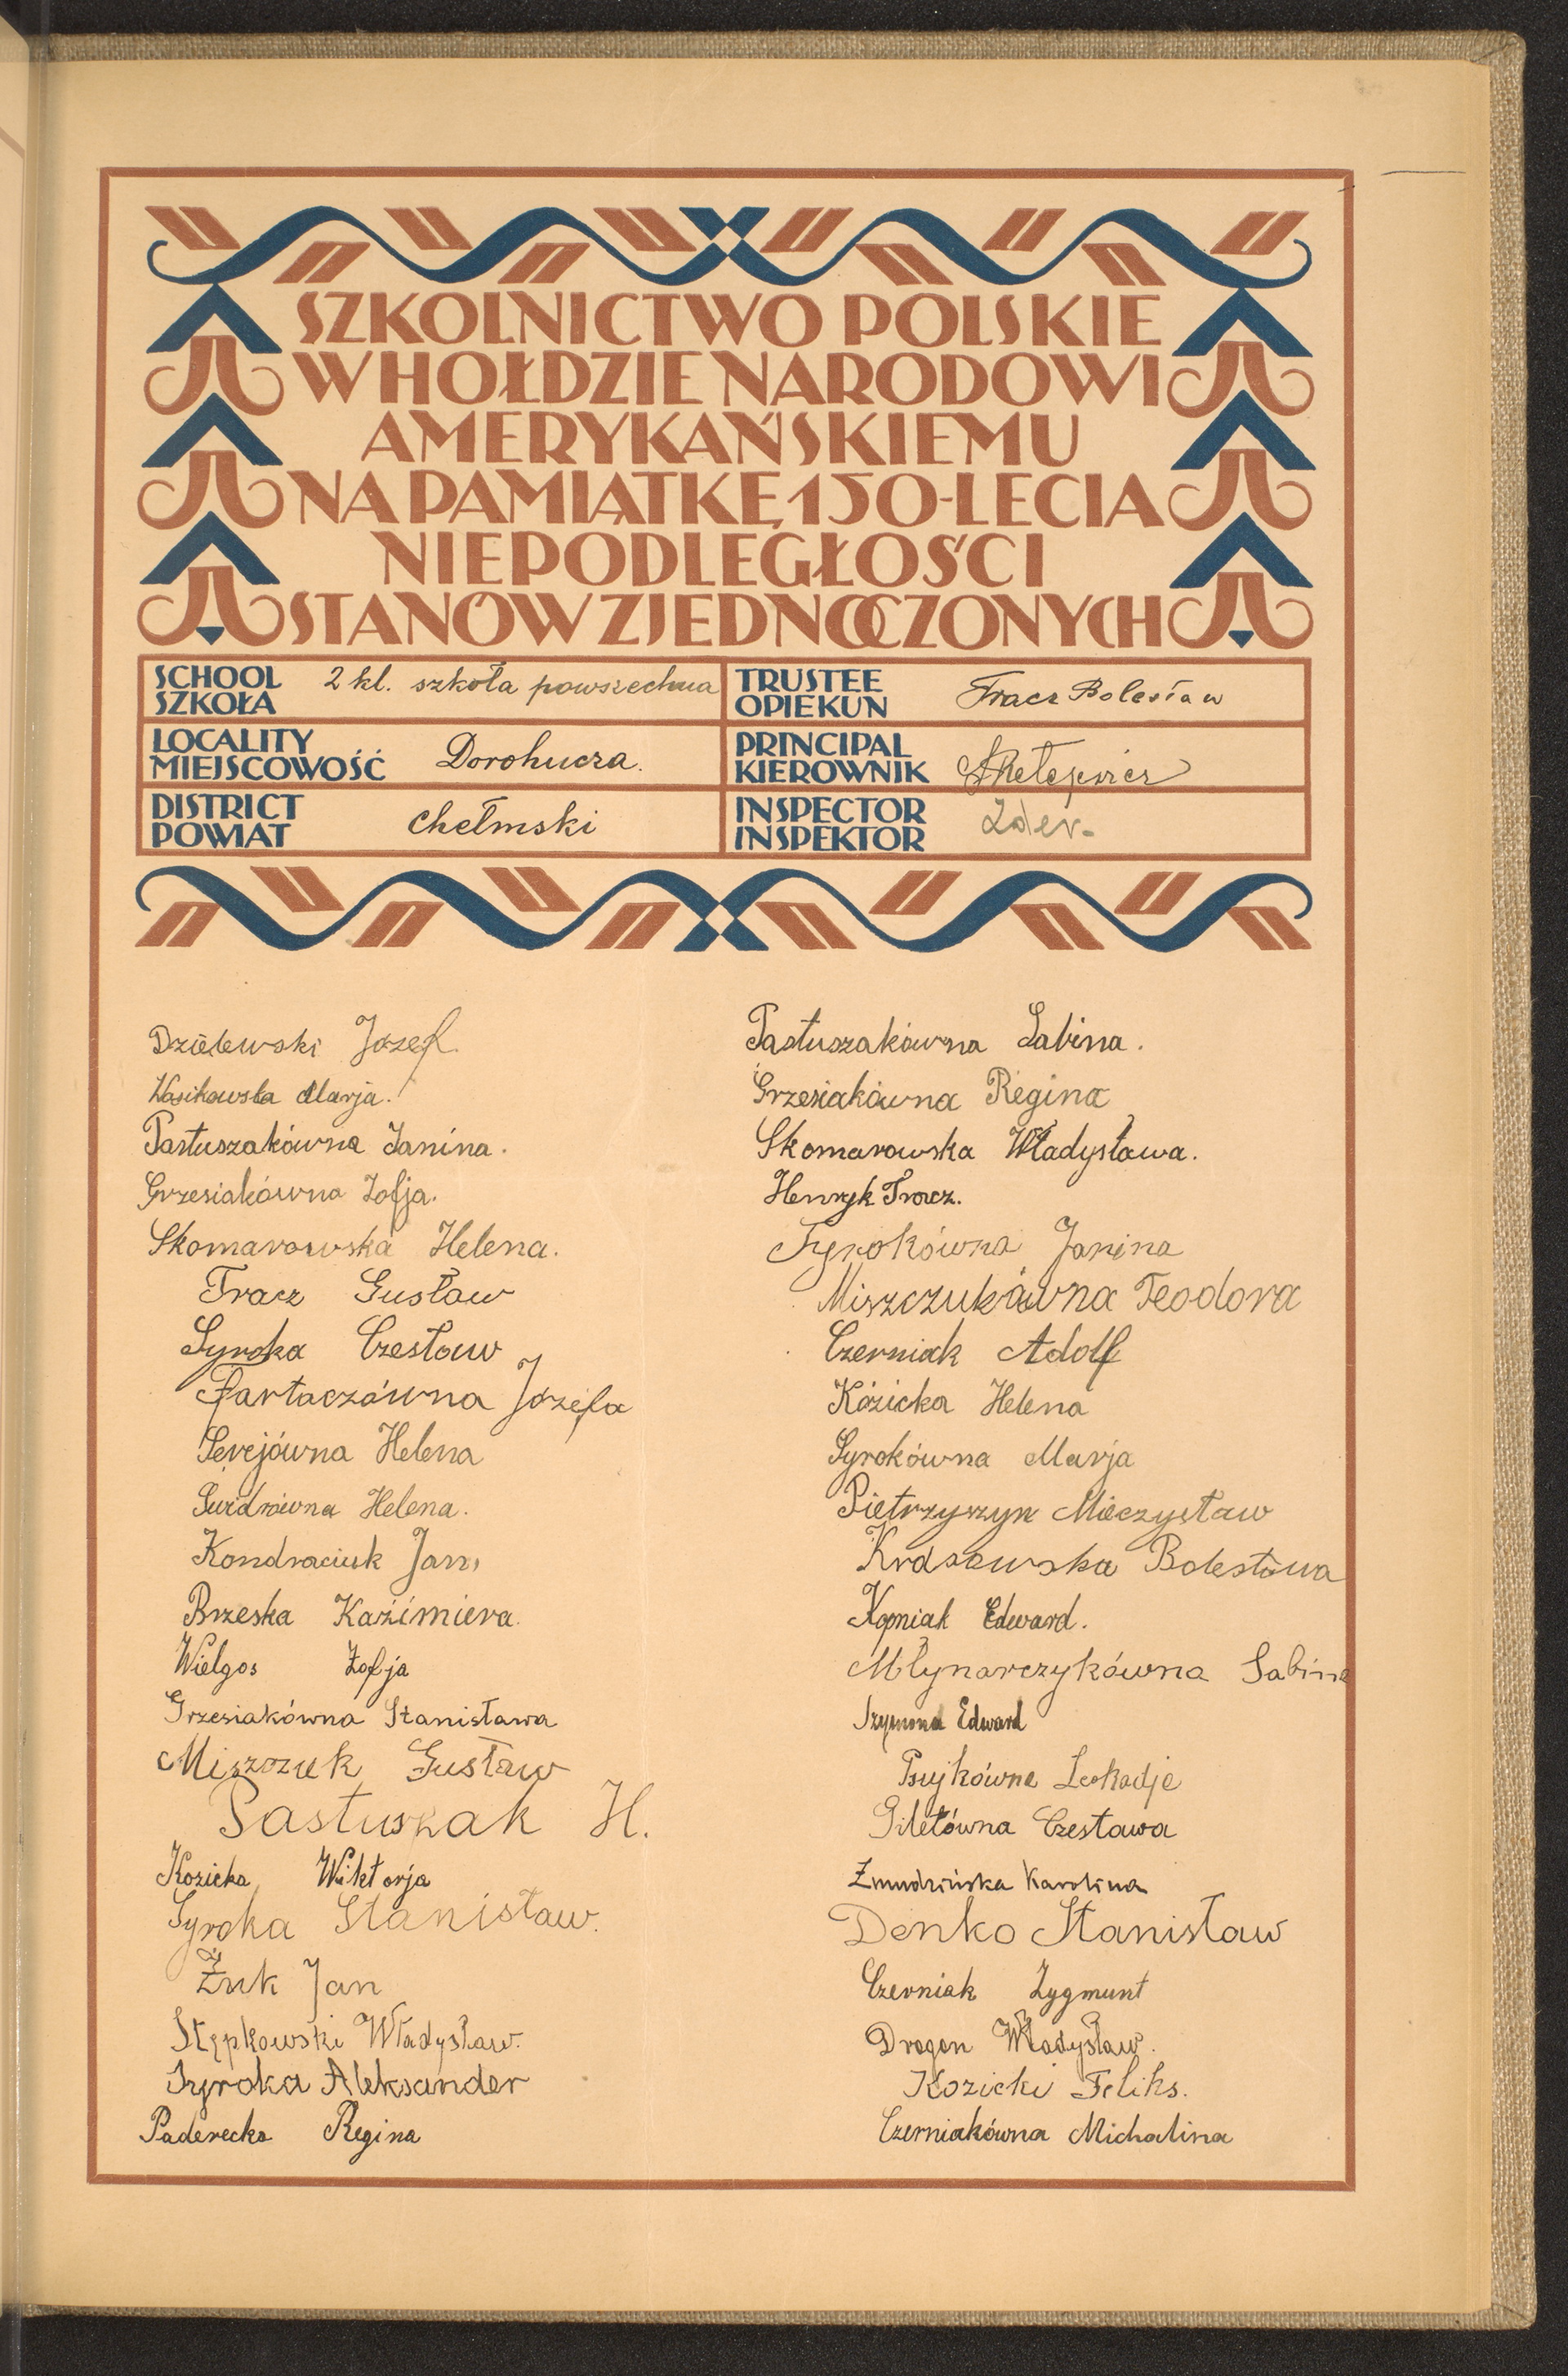 SZKOLNICTWO POLSKIE
W HOŁDZIE NARODOWI
AMERYKAŃSKIEMU
NA PAMIĄTKĘ 150-LECIA
NIEPODLEGŁOŚCI
STANÓW ZJEDNOCZONYCH
SCHOOL
SZKOŁA
2 kl. szkoła powszechna
TRUSTEE
OPIEKUN
Tracz Bolesław
LOCALITY
MIEJSCOWOŚĆ
Dorohucza.
PRINCIPAL
KIEROWNIK
DISTRICT
POWIAT
Chełmski
INSPECTOR
INSPEKTOR
Dzielewski Józef.
Wasikowska Marja.
Pastuszakówna Janina.
Grzesiakówna Zofja.
Skomarowska Helena.
Tracz Gustaw
Syroka Czesław
Partaczówna Józefa
Serejówna Helena
Świdrówna Helena.
Kondraciuk Jan
Brzeska Kazimiera.
Wielgos Zofja
Grzesiakówna Stanisława
Miszczuk Gustaw
Pastuszak H.
Kozicka Wiktorja
Syroka Stanisław.
Żuk Jan
Stępkowski Władysław.
Syroka Aleksander
Paderecka Regina
Pastuszakówna Sabina.
Grzesiakówna Regina
Skomarowska Władysława.
Henryk Tracz.
Syrokówna Janina
Miszczukówna Teodora
Czerniak Adolf
Kozicka Helena
Syrokówna Marja
Pietrzyszyn Mieczysław
Krasowska Bolesława
Kopniak Edward.
Młynarczykówna Sabina
Szymona Edward
Psujkówna Leokadja
Giletówna Czesława
Żmudzińska Karolina
Denko Stanisław
Czerniak Zygmunt
Dragan Władysław.
Kozicki Feliks.
Czerniakówna Michalina